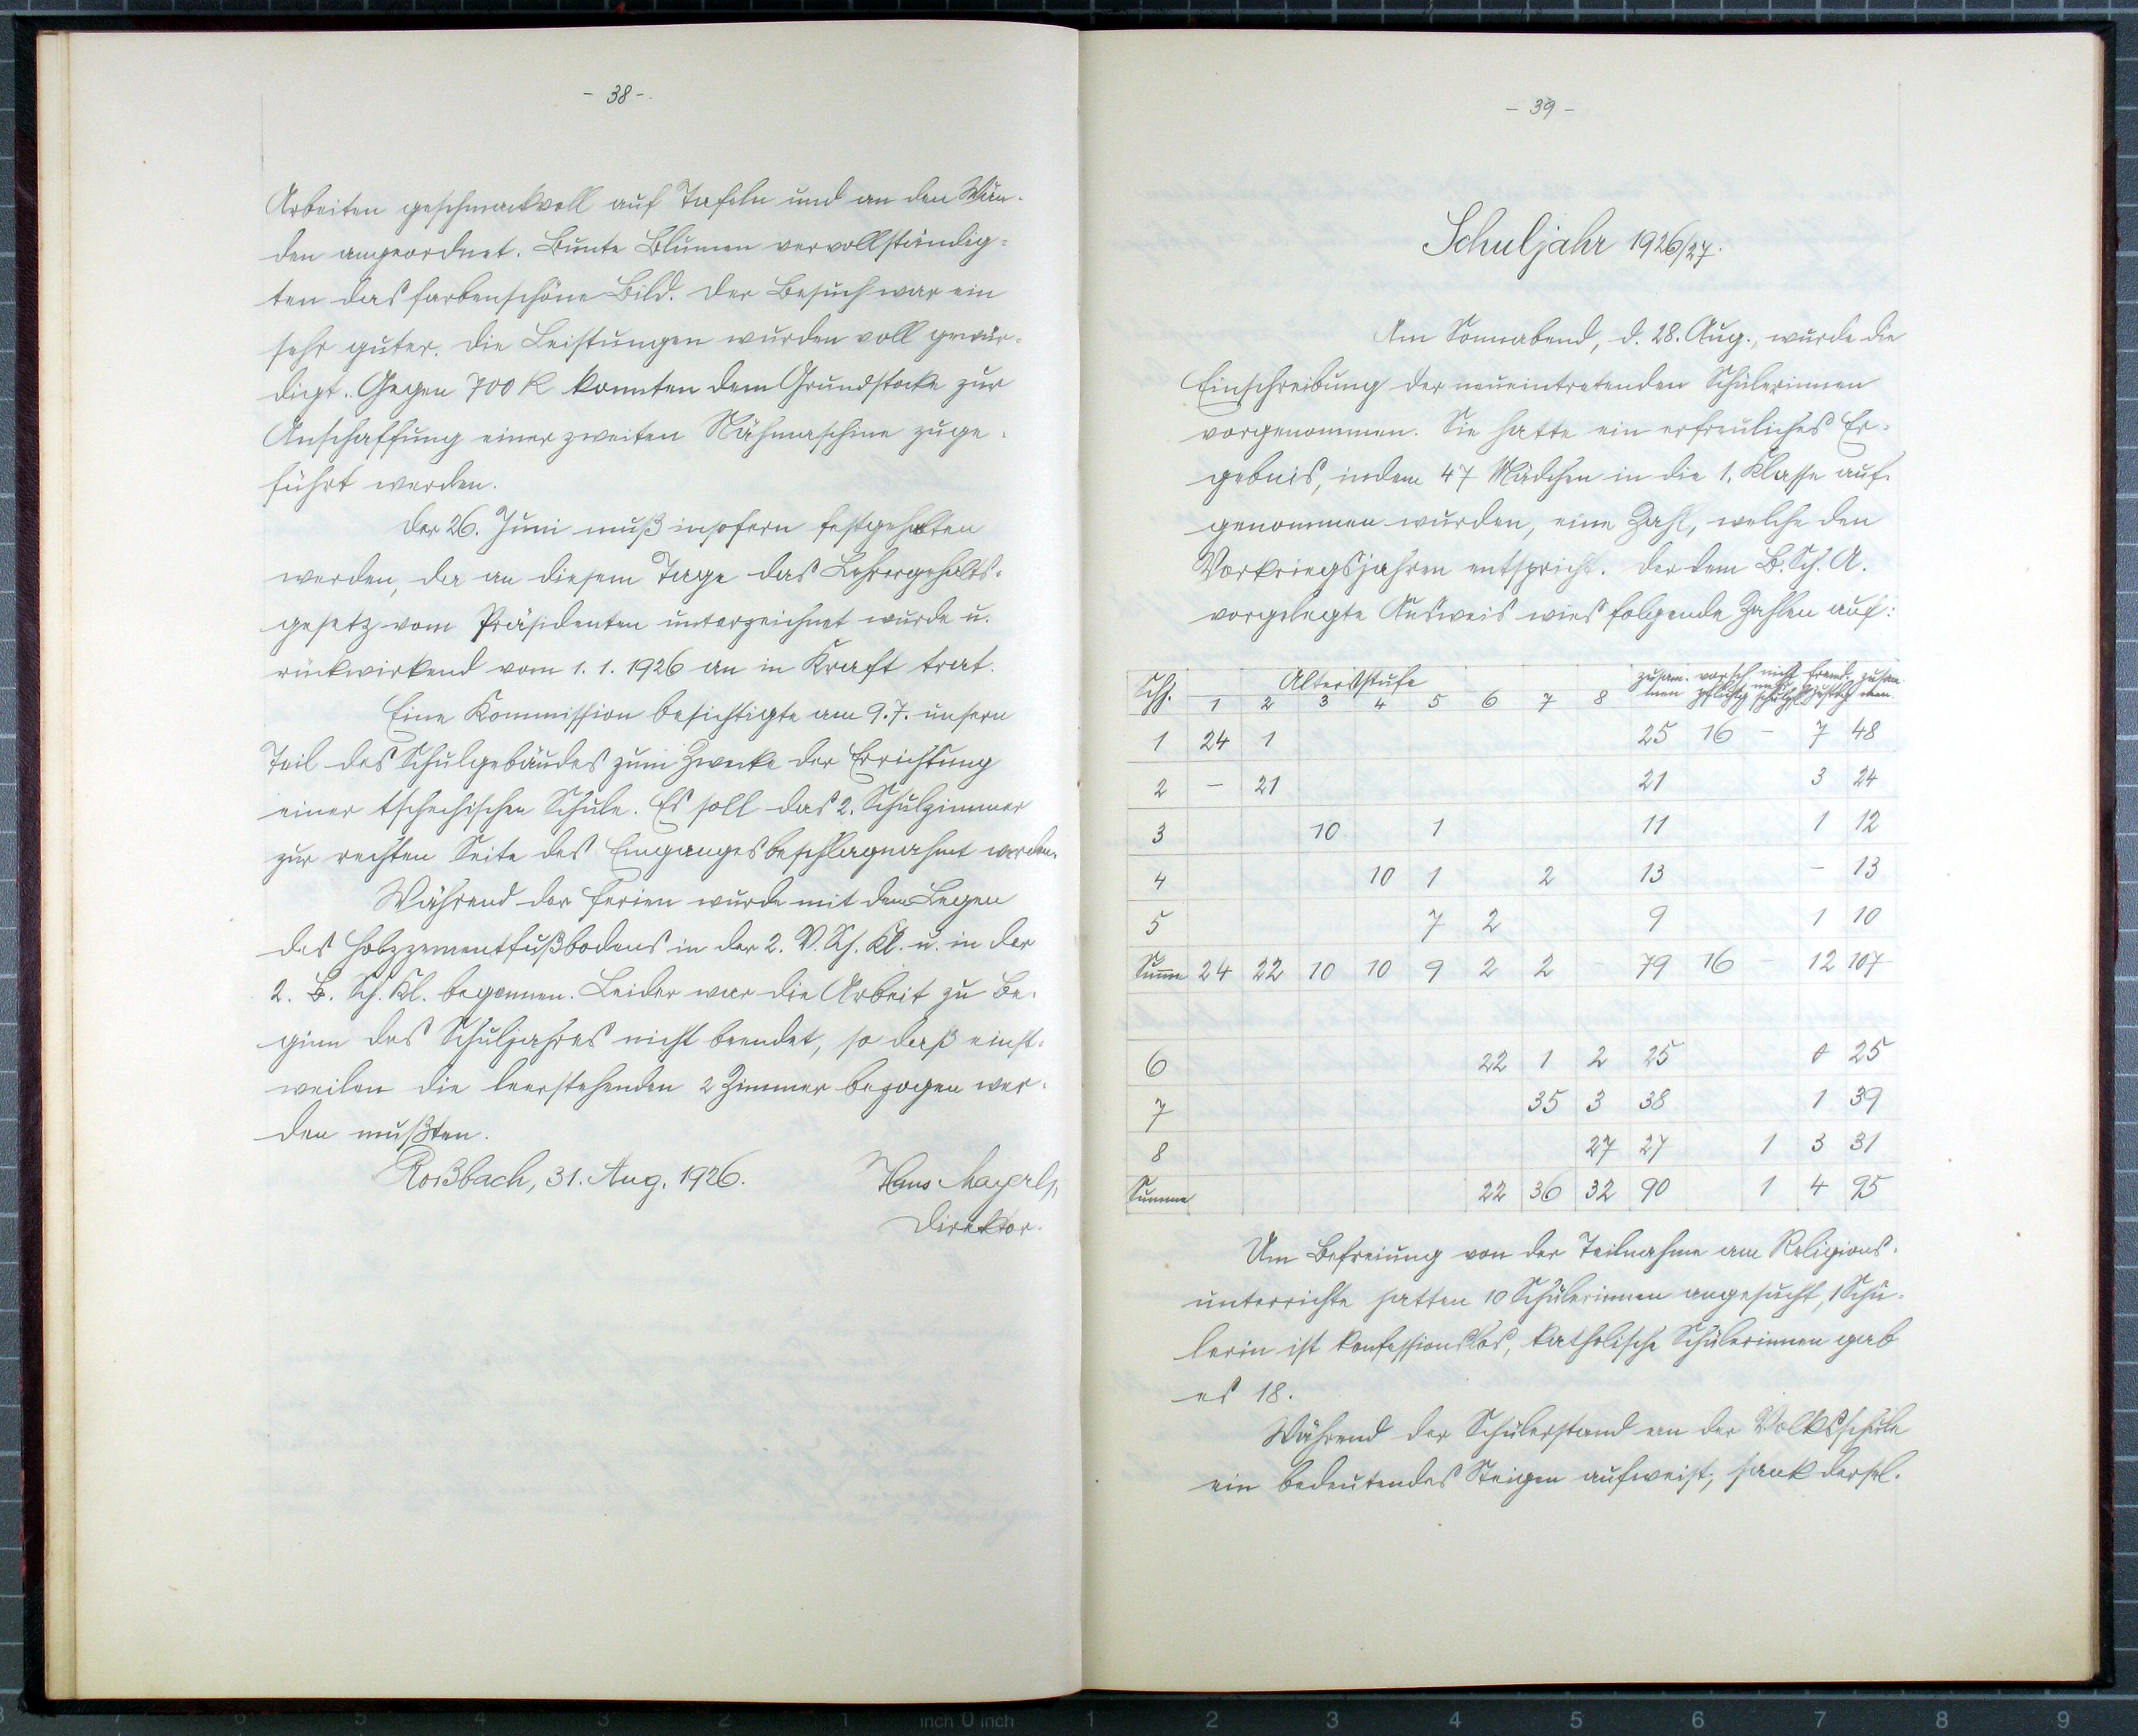 - 38 -.
Arbeiten geschmackvoll auf Tafeln und an den Wän-
den angeordnet. Bunte Blumen vervollständig-
ten das farbenschöne Bild. Der Besuch war ein
sehr guter. Die Leistungen wurden voll gewür-
digt. Gegen 700 K konnten dem Grundstocke zur
Anschaffung einer zweiten Nähmaschine zuge-
führt werden.
Der 26. Juni muß insofern festgehalten
werden, da an diesem Tage das Lehrergehalts-
gesetz vom Präsidenten unterzeichnet wurde u.
rückwirkend vom 1. 1. 1926 an in Kraft trat.
Eine Kommission besichtigte am 9. 7. unsern
Teil des Schulgebäudes zum Zwecke der Errichtung
einer tschechischen Schule. Es soll das 2. Schulzimmer
zur rechten Seite des Einganges beschlagnahmt werden.
Während der Ferien wurde mit dem Legen
des Holzzementfußbodens in der 2. V. Sch. Kl. u. in der
2. B. Sch. Kl. begonnen. Leider war die Arbeit zu Be-
ginn des Schuljahres nicht beendet, so daß einst-
weilen die leerstehenden 2 Zimmer bezogen wer-
den mußten.
Roßbach, 31. Aug. 1926. Hans Mayerl,
Direktor.
- 39 -
Schuljahr 1926/27.
Am Sonnabend, d. 28. Aug., wurde die
Einschreibung der neueintretenden Schülerinnen
vorgenommen. Sie hatte ein erfreuliches Er-
gebnis, indem 47 Mädchen in die 1. Klasse auf-
genommen wurden, eine Zahl, welche den
Vorkriegsjahren entspricht. Der dem B. Sch. A.
vorgelegte Ausweis wies folgende Zahlen auf:
Altersstufe zusam- vorsch nicht fremd- zusam
Schj. 1 2 3 4 5 6 7 8 men pflichtig mehr men
1 24 1 25 16 - 7 48
2 - 21 21 3 24
3 10 1 11 1 12
4 10 1 2 13 - 13
5 7 2 9 1 10
Summe 24 22 10 10 9 2 2 - 79 16 - 12 107
6 22 1 2 25 0 25
7 35 3 38 1 39
8 27 27 1 3 31
Summe 22 36 32 90 1 4 95
Um Befreiung von der Teilnahme am Religions-
unterrichte hatten 10 Schülerinnen angesucht, 1 Schü-
lerin ist konfessionslos, katholische Schülerinnen gab
es 18.
Während der Schülerstand an der Volksschule
ein bedeutendes Steigen aufweist, sank dersel-